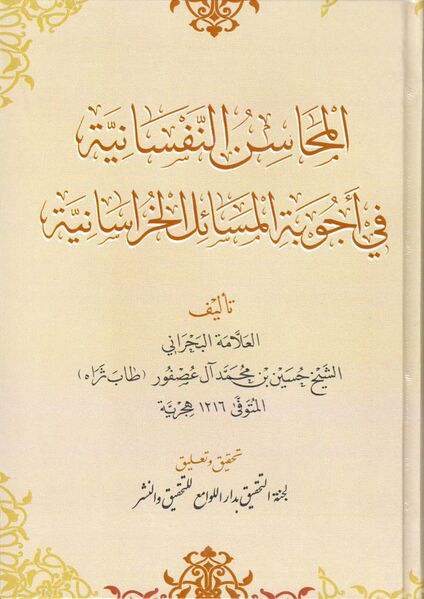 المَحَاسِنُ النَّفْسَانِيَّة
فِي أَجْوِبَةِ المَسَائِلِ الخُرَاسَانِيَّة
تأليف
العَلَّامَة البَحْرَاني
الشَّيْخ حُسَيْن بن مُحَمَّد آل عُصْفُور (طَابَ ثَرَاه)
المُتَوفَّى ١٢١٦ هِجْرِيَّة
تحقيق وتعليق
لجنة التحقيق بدار اللوامع للتحقيق والنشر